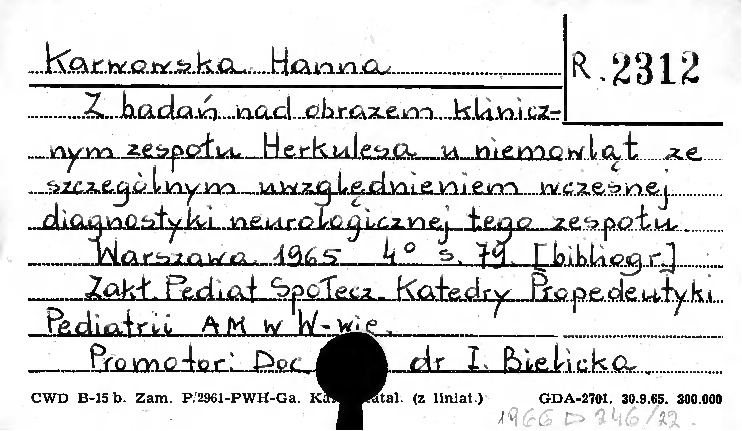 Karwowska Hanna
R. 2312
Z badań nad obrazem klinicz-
nym zespołu Herkulesa u niemowląt ze
szczególnym uwzględnieniem wczesnej
diagnostyki neurologicznej tego zespołu.
Warszawa 1965 4° s. 79. [bibliogr.]
Zakł. Pediat Społecz. Katedry Propedeutyki
Pediatrii AM w W-wie.
Promotor: Doc. dr I. Bielicka.
CWD B-15 b. Zam. P/2961-PWH-Ga. (z liniat.) GDA-2701. 30.9.65. 300.000
1966 D 246/22.